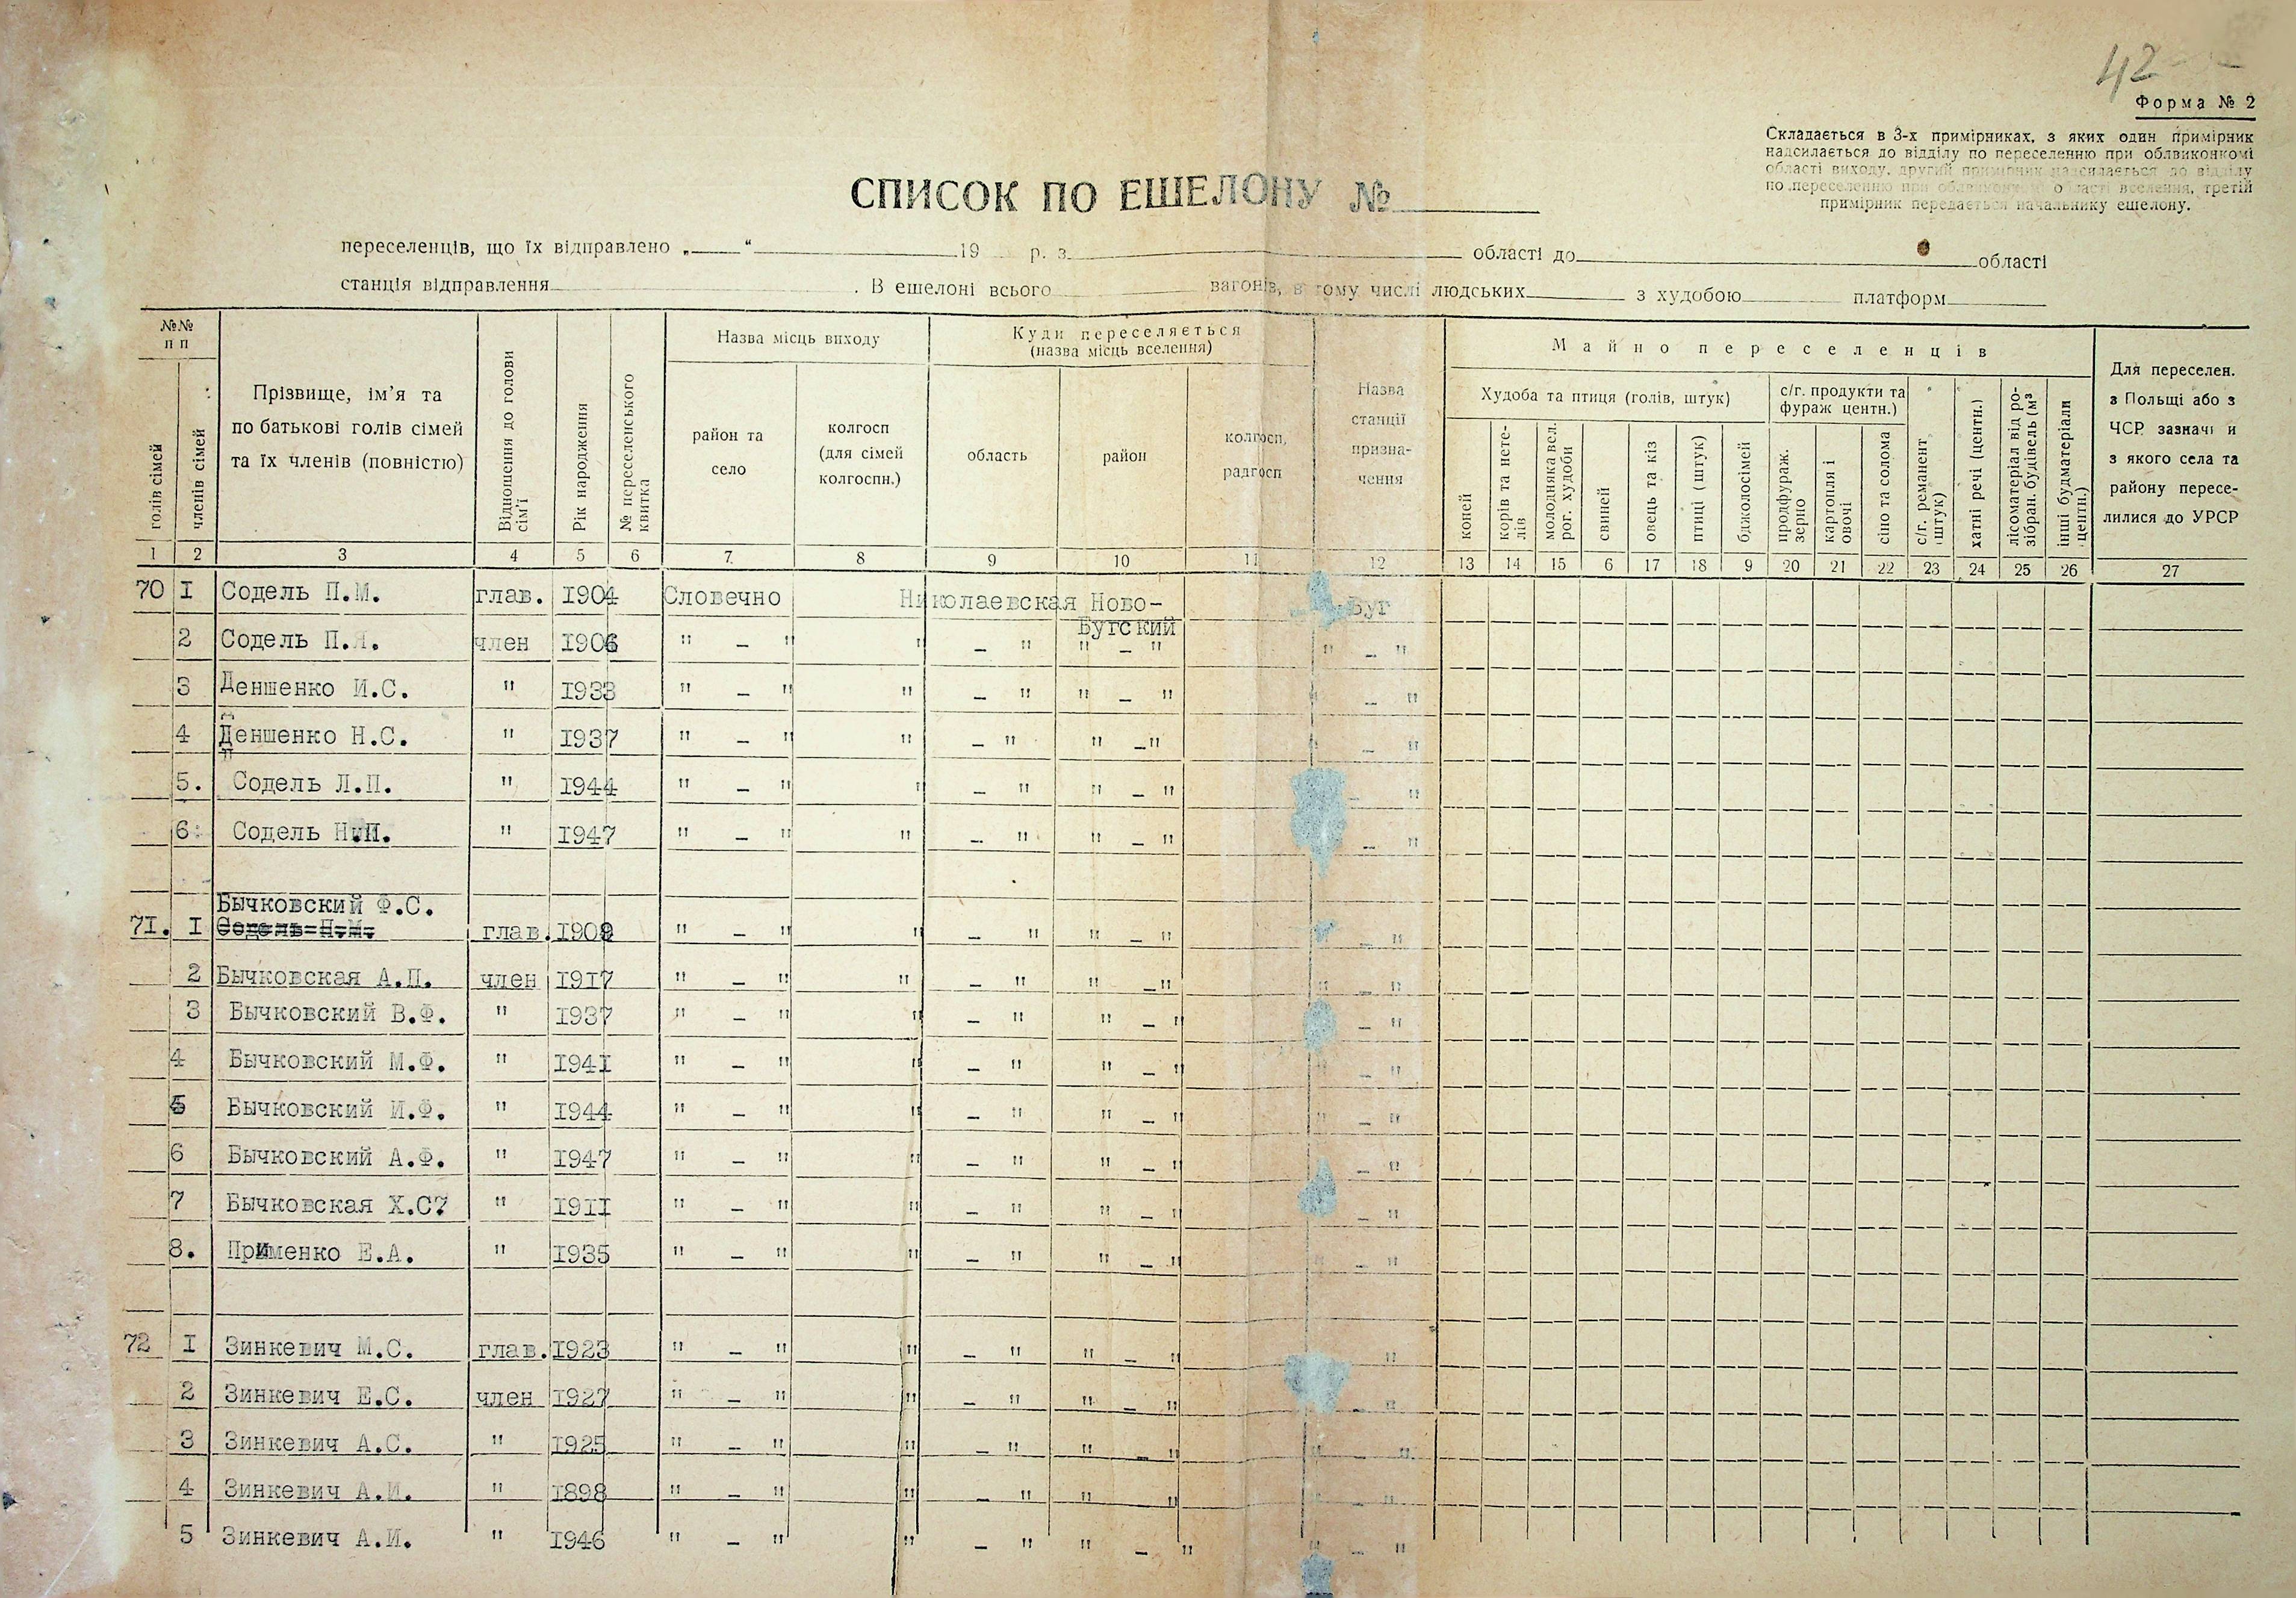 42
Форма № 2
Складається в 3-х примірниках, з яких один примірник
надсилається до відділу по переселенню при облвиконкомі
області виходу, другий примірник надсилається до відділу
по переселенню при облвиконкомі області вселення, третій
примірник передається начальнику ешелону.
СПИСОК ПО ЕШЕЛОНУ №
переселенців, що їх відправлено „ “ 19 р. з області до області
станція відправлення . В ешелоні всього вагонів, в тому числі людських з худобою платформ
№№ п п
голів сімей
членів сімей
Прізвище, ім’я та
по батькові голів сімей
та їх членів (повністю)
Відношення до голови сім’ї
Рік народження
№ переселенського квитка
Назва місць виходу
район та село
колгосп (для сімей колгоспн.)
Куди переселяється (назва місць вселення)
область
район
колгосп, радгосп
Назва станції призна-чення
Майно переселенців
Худоба та птиця (голів, штук)
коней
корів та нете-лів
молодняка вел. рог. худоби
свиней
овець та кіз
птиці (штук)
бджолосімей
с/г. продукти та фураж центн.)
продфураж. зерно
картопля і овочі
сіно та солома
с/г. реманент штук)
хатні речі (центн.)
лісоматеріал від ро-зібран. будівель (м³
інші будматеріали центн.)
Для переселен.
з Польщі або з
ЧСР зазначи и
з якого села та
району пересе-
лилися до УРСР
1 2 3 4 5 6 7. 8 9 10 11 12 13 14 15 6 17 18 9 20 21 22 23 24 25 26 27
70 I Содель П.М. глав. 1904 Словечно Николаевская Ново-Бугский Буг
2 Содель П.Я. член 1906 " – " " – " " – " " – "
3 Деншенко И.С. " 1933 " – " " – " " – " – "
4 Деншенко Н.С. " 1937 " – " " – " " – " – "
5. Содель Л.П. " 1944 " – " " – " " – " – "
6. Содель Н.П. " 1947 " – " " – " " – " – "
Бычковский Ф.С.
71. I Содель Н.М. глав. 1909 " – " " – " " – " – "
2 Бычковская А.П. член 1917 " – " " – " " – " " – "
3 Бычковский В.Ф. " 1937 " – " " – " " – " – "
4 Бычковский М.Ф. " 1941 " – " " – " " – " " – "
5 Бычковский И.Ф. " 1944 " – " " – " " – " " – "
6 Бычковский А.Ф. " 1947 " – " " – " " – " – "
7 Бычковская Х.С7 " 1911 " – " " – " " – " – "
8. Применко Е.А. " 1935 " – " " – " " – " " – "
72 I Зинкевич М.С. глав. 1923 " – " " – " " – " "
2 Зинкевич Е.С. член 1927 " – " " – " " – " – "
3 Зинкевич А.С. " 1925 " – " " – " " – " " – "
4 Зинкевич А.И. " 1898 " – " " – " " – " " – "
5 Зинкевич А.И. " 1946 " – " " – " " – " " – "